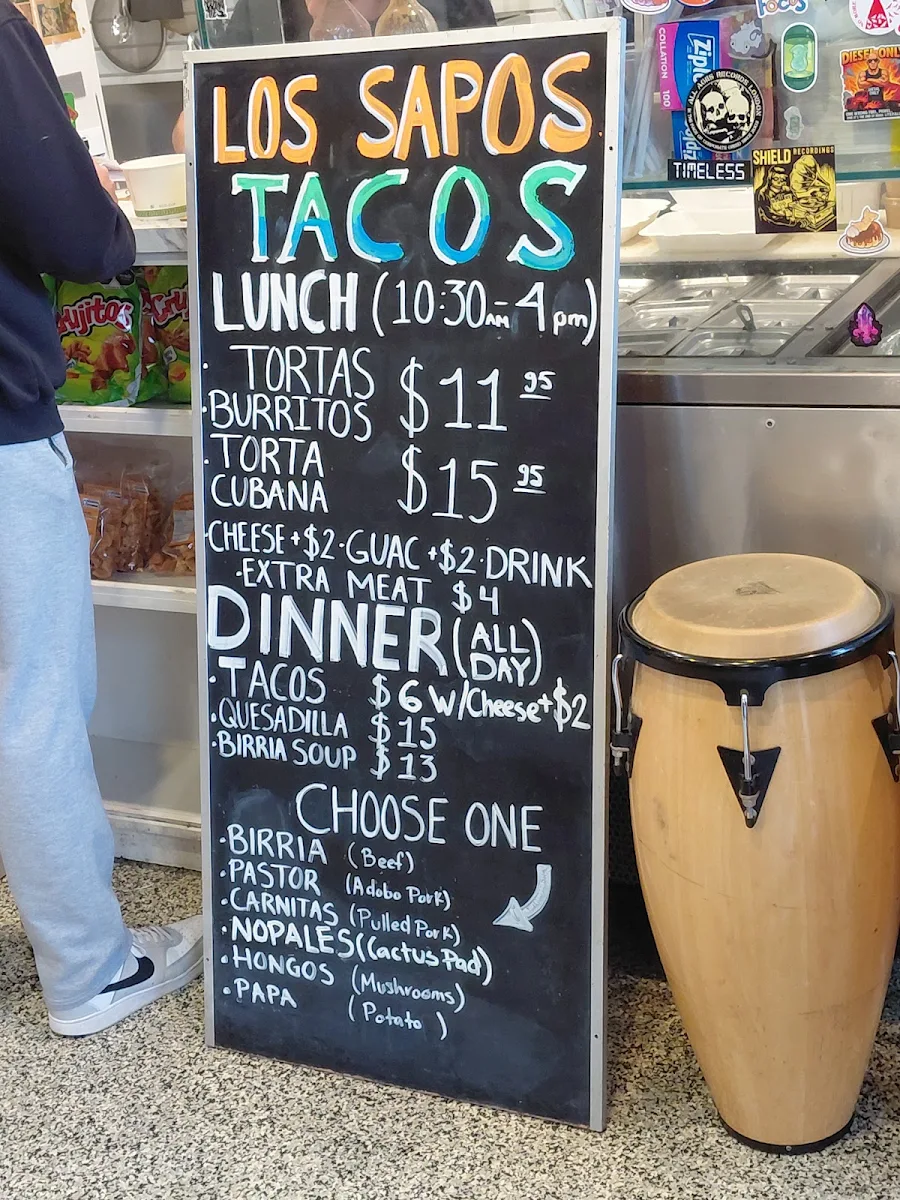 LOS SAPOS
TACOS
LUNCH (10:30AM - 4pm)
· TORTAS
· BURRITOS $11 95
· TORTA
CUBANA $15 95
· CHEESE +$2 · GUAC +$2 · DRINK
· EXTRA MEAT $4
DINNER (ALL DAY)
· TACOS $6 w/Cheese +$2
· QUESADILLA $15
· BIRRIA SOUP $13
CHOOSE ONE
· BIRRIA (Beef)
· PASTOR (Adobo Pork)
· CARNITAS (Pulled Pork)
· NOPALES (Cactus Pad)
· HONGOS (Mushrooms)
· PAPA (Potato)
COLLATION 100
Ziploc
ALL AGES RECORDS LONDON
TIMELESS
SHIELD RECORDINGS
DIESEL ONLY